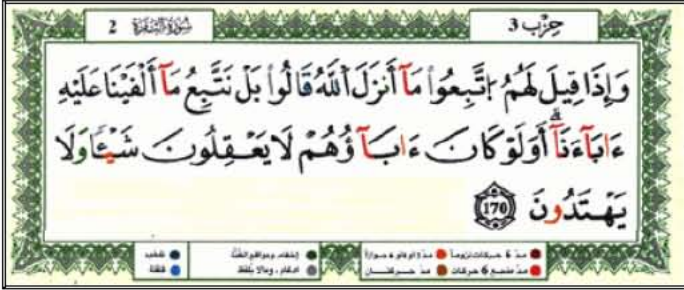 حِزْب 3
سُورَةُ الْبَقَرَة 2
وَإِذَا قِيلَ لَهُمُ اِتَّبِعُوا مَآ أَنزَلَ اَللَّهُ قَالُوا بَلْ نَتَّبِعُ مَآ أَلْفَيْنَا عَلَيْهِ
ءَابَآءَنَآ أَوَلَوْ كَانَ ءَابَآؤُهُمْ لَا يَعْقِلُونَ شَيْـًٔا وَلَا
يَهْتَدُونَ 170
مدّ 6 حركات لزوماً
مدّ مشبع 6 حركات مدّ حركتان
إدغام ، وما لا يُلفظ
تفخيم
قلقلة